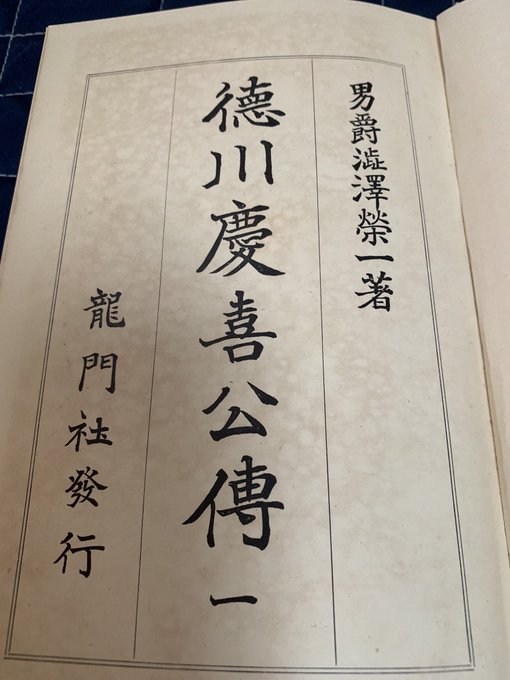 男爵澁澤榮一著
德川慶喜公傳 一
龍門社發行